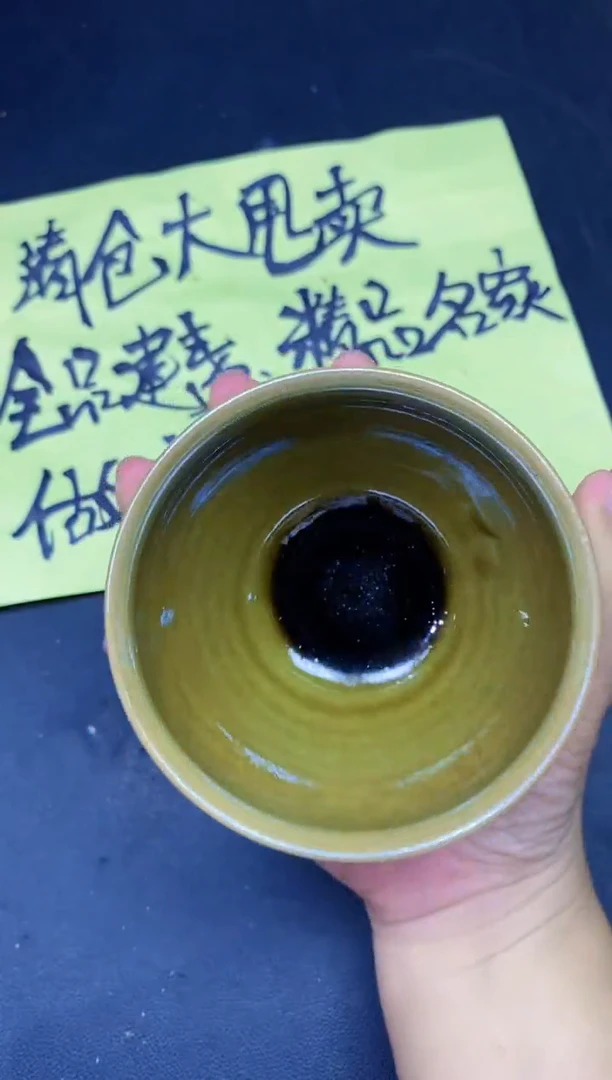 清仓大甩卖
全品建盏、精品名家